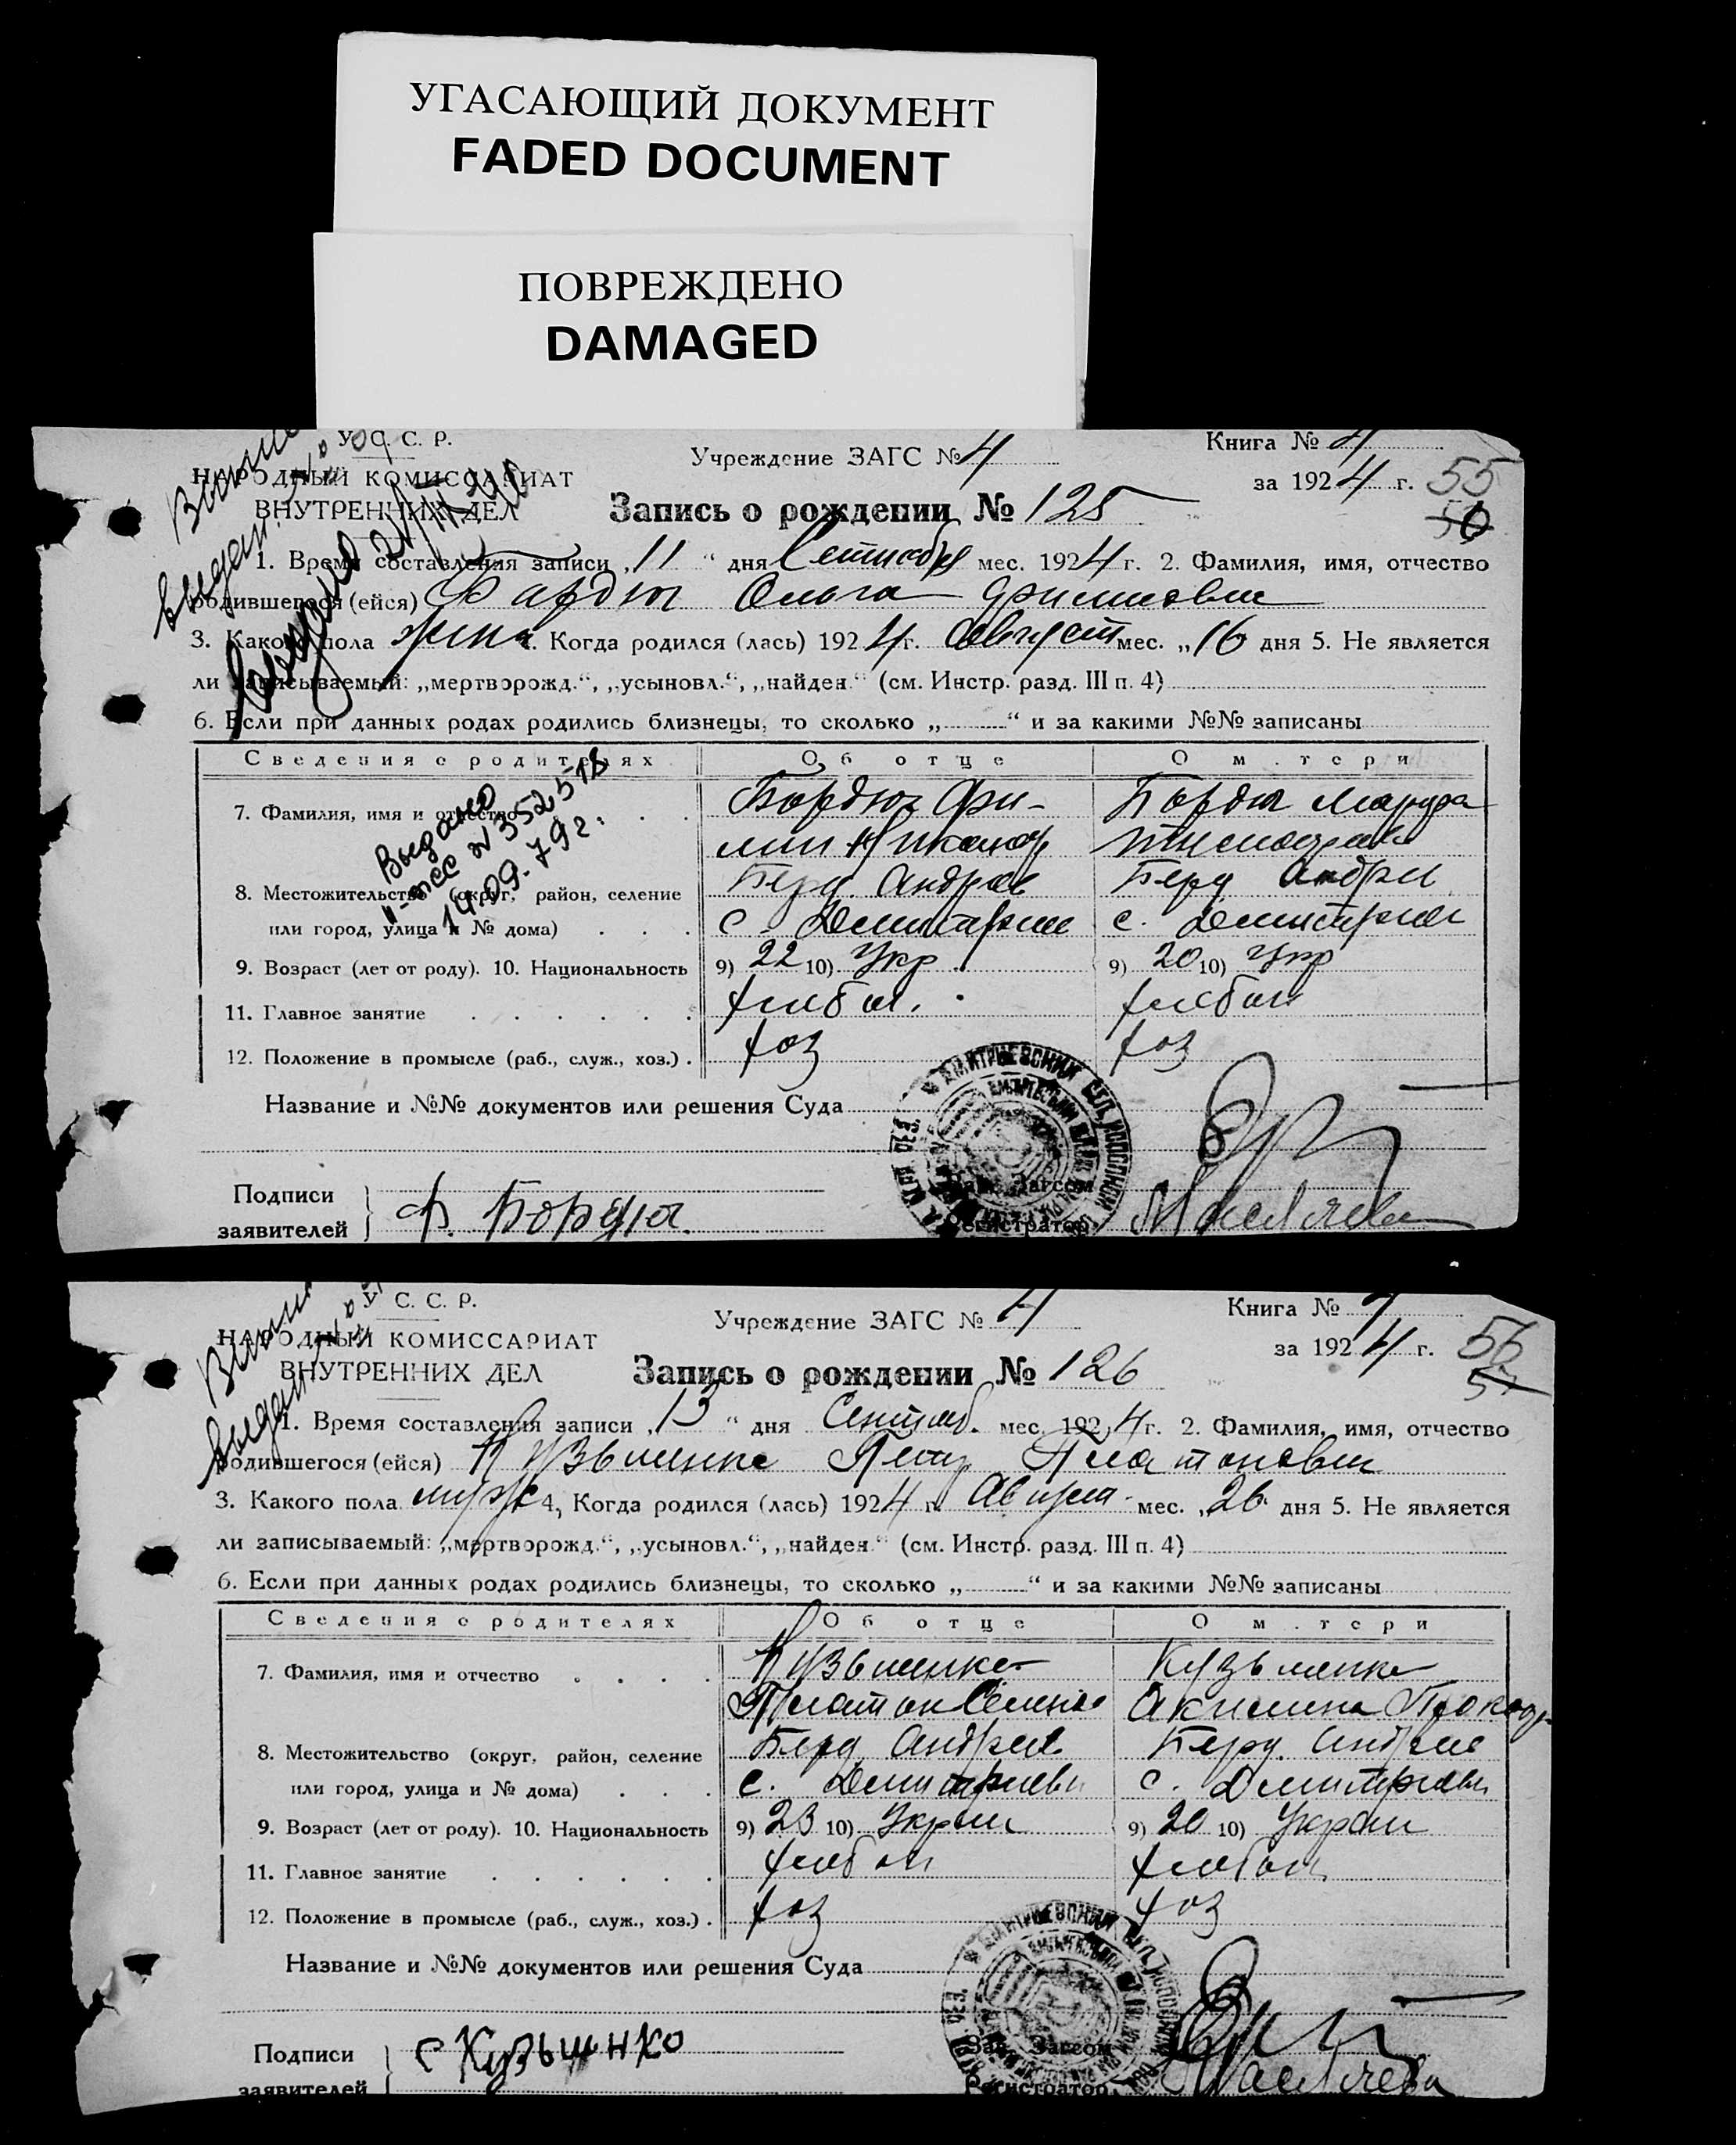 УГАСАЮЩИЙ ДОКУМЕНТ
FADED DOCUMENT
ПОВРЕЖДЕНО
DAMAGED
У. С. С. Р.
НАРОДНЫЙ КОМИССАРИАТ
ВНУТРЕННИХ ДЕЛ
Учреждение ЗАГС № 4
Книга № 4
за 1924 г. 55
Запись о рождении № 125
1. Время составления записи „11“ дня Сентября мес. 1924 г. 2. Фамилия, имя, отчество
родившегося (ейся) Ольга
3. Какого пола жен 4. Когда родился (лась) 1924 г. Август мес. „16 дня 5. Не является
ли записываемый: „мертворожд.“, „усыновл.“, „найден.“ (см. Инстр. разд. III п. 4)
6. Если при данных родах родились близнецы, то сколько „ “ и за какими №№ записаны
Сведения о родителях Об отце О м.тери
Выдано
14.09.79 г.
7. Фамилия, имя и отчество Бордюг Фи-
8. Местожительство (округ, район, селение Берд Андрее Берд Андрее
или город, улица и № дома) с. с.
9. Возраст (лет от роду). 10. Национальность 9) 22 10) Укр. 9) 20 10) Укр
11. Главное занятие хлебоп. хлебоп
12. Положение в промысле (раб., служ., хоз.) хоз хоз
Название и №№ документов или решения Суда
Зав. Загсом
Подписи
заявителей Ф. Бордюг.
Регистратор
У. С. С. Р.
НАРОДНЫЙ КОМИССАРИАТ
ВНУТРЕННИХ ДЕЛ
Учреждение ЗАГС № 4
Книга № 4
за 1924 г. 56
Запись о рождении № 126
1. Время составления записи „13“ дня Сентяб. мес. 1924 г. 2. Фамилия, имя, отчество
родившегося (ейся) Кузьменко Петр Платонович
3. Какого пола муж 4, Когда родился (лась) 1924 г. Август мес. „26 дня 5. Не является
ли записываемый: „мертворожд.“, „усыновл.“, „найден.“ (см. Инстр. разд. III п. 4)
6. Если при данных родах родились близнецы, то сколько „ “ и за какими №№ записаны
Сведения о родителях Об отце О м.тери
7. Фамилия, имя и отчество Кузьменко Кузьменко
Платон Семено Акилина Прокоф
8. Местожительство (округ, район, селение Берд. Андреев Берд. Андреев
или город, улица и № дома) с. Дмитриевки с. Дмитриевки
9. Возраст (лет от роду). 10. Национальность 9) 23 10) Украин 9) 20 10) Украин
11. Главное занятие хлебоп хлебоп
12. Положение в промысле (раб., служ., хоз.) хоз хоз
Название и №№ документов или решения Суда
Зав. Загсом
Подписи
заявителей с Кузьменко
Регистратор